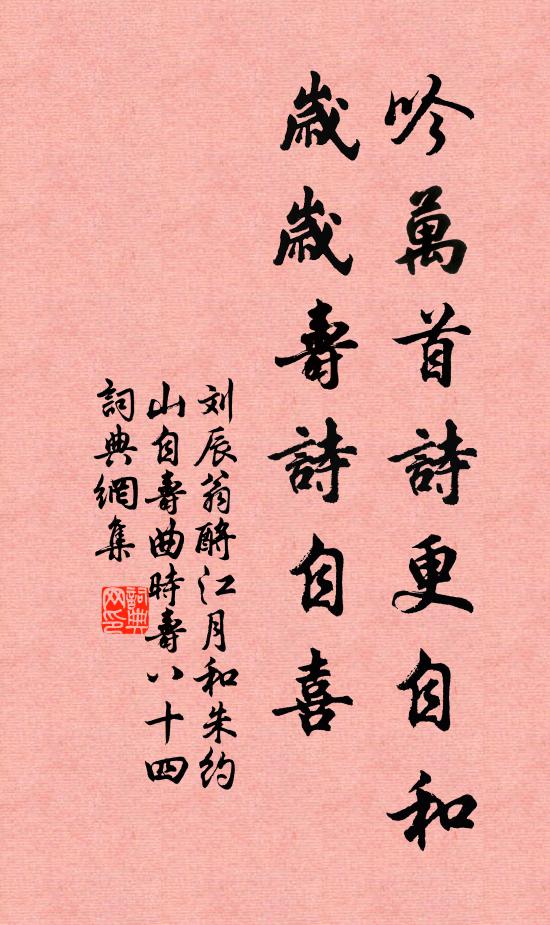 吟萬首詩更自和
歲歲壽詩自喜
刘辰翁酹江月和朱约
山自壽曲時壽八十四
詞典網集
詞典
网印